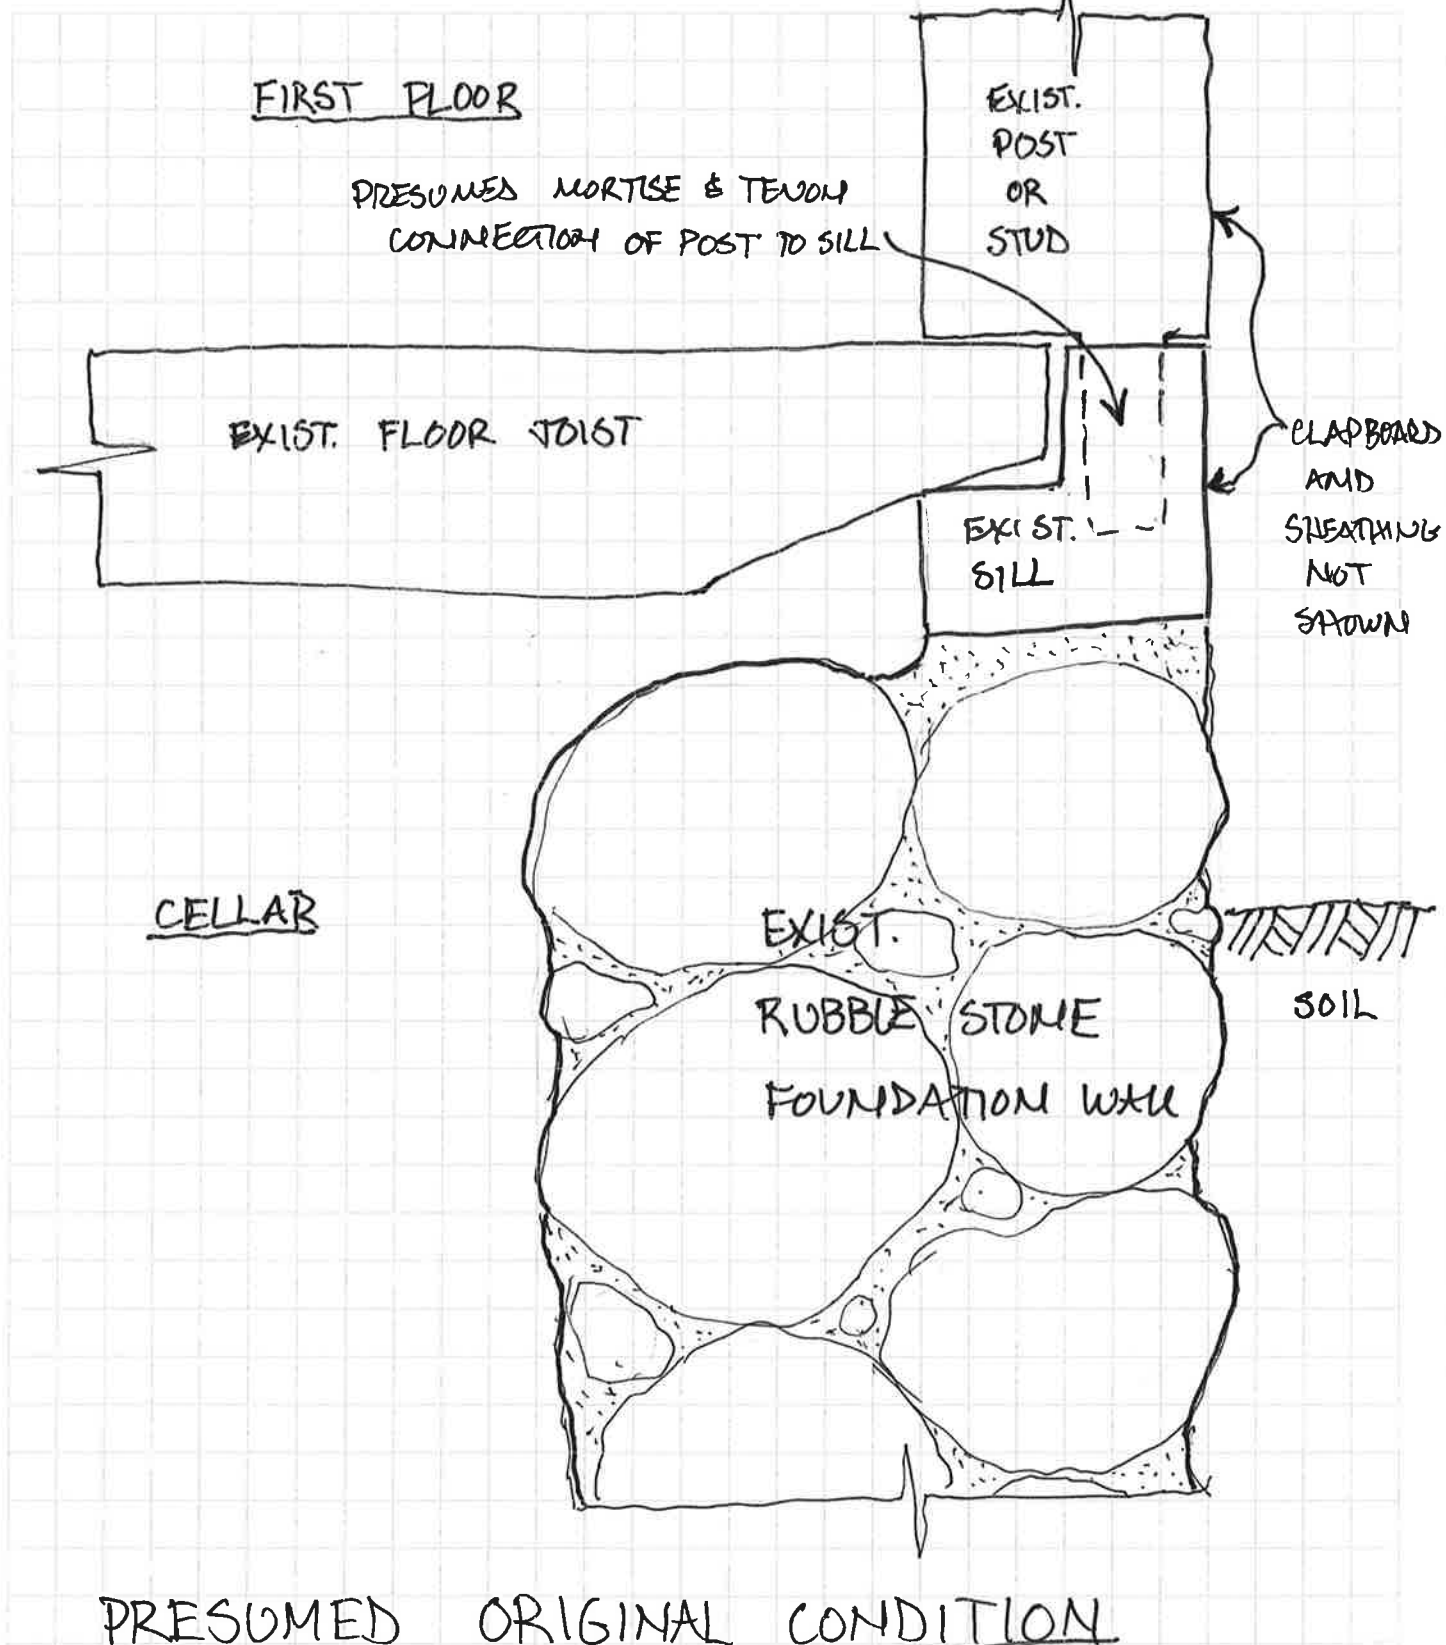 FIRST FLOOR
EXIST.
POST
OR
STUD
PRESUMED MORTISE & TENON
CONNECTION OF POST TO SILL
EXIST. FLOOR JOIST
CLAPBOARD
AND
SHEATHING
NOT
SHOWN
EXIST.
SILL
CELLAR
EXIST.
RUBBLE STONE
FOUNDATION WALL
SOIL
PRESUMED ORIGINAL CONDITION